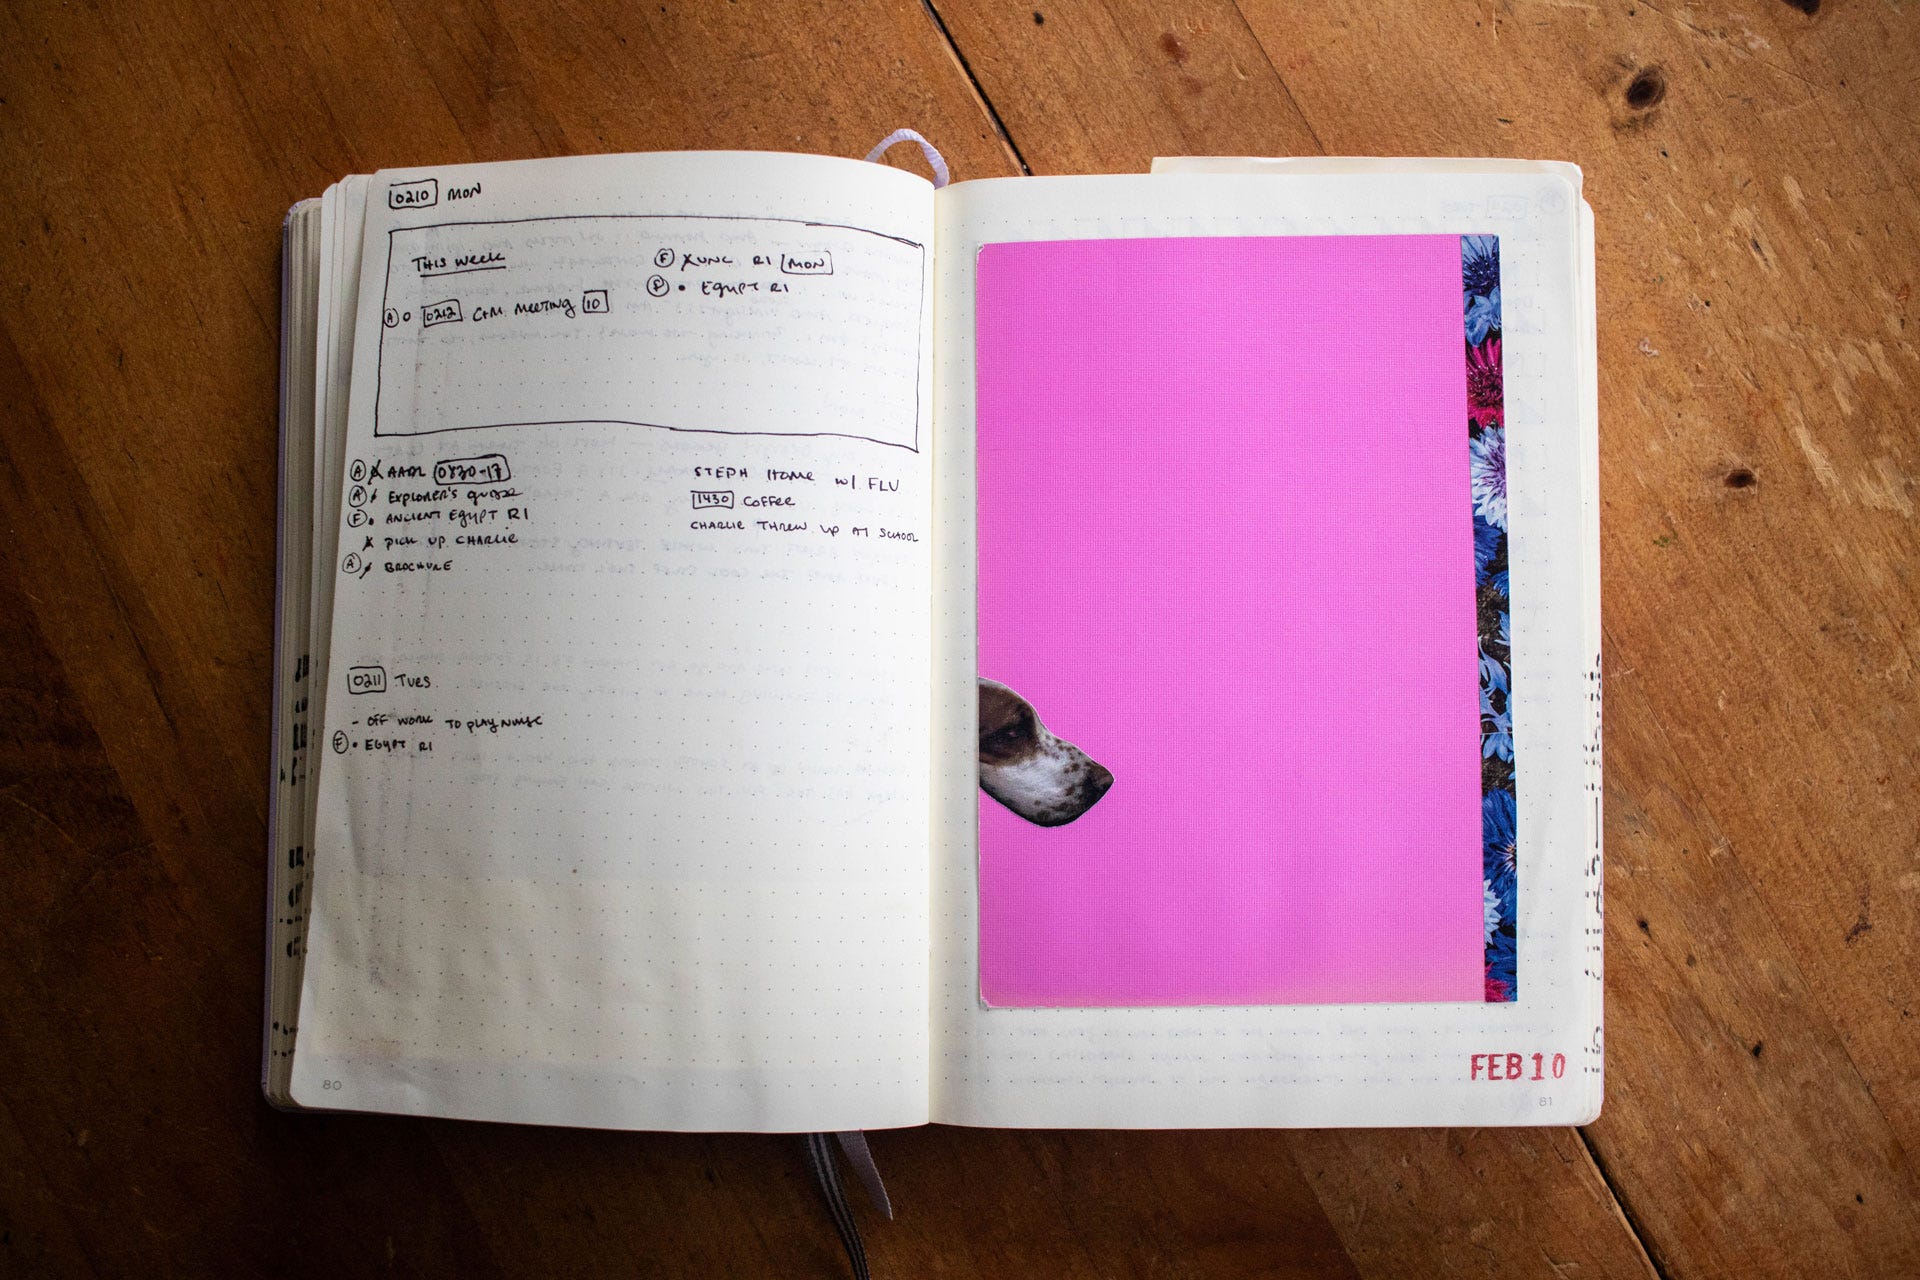 0210 MON
THIS WEEK
A 0212 C+M MEETING 10
F X UNC R1 MON
F • EGYPT R1
A X AADL 0830-17
A EXPLORER'S GUIDE
F • ANCIENT EGYPT R1
X PICK UP CHARLIE
A BROCHURE
STEPH HOME w/ FLU
1430 COFFEE
CHARLIE THREW UP AT SCHOOL
0211 TUES
- OFF WORK TO PLAY NURSE
F • EGYPT R1
80
FEB 10
81